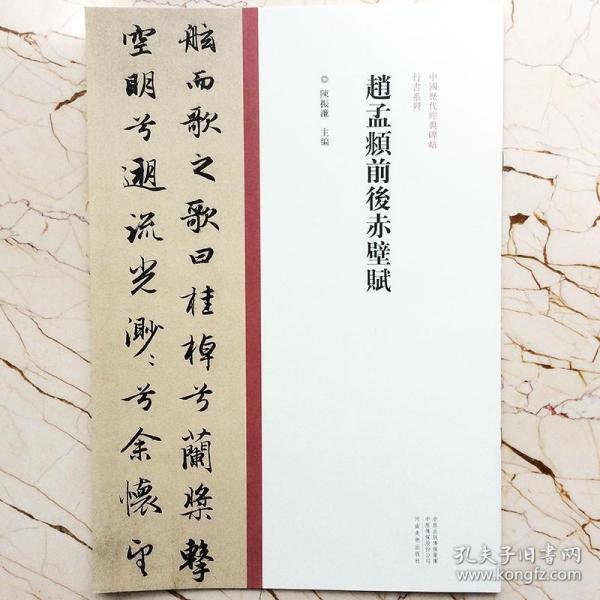 中國歷代經典碑帖
行書系列
趙孟頫前後赤壁賦
◎ 陳振濂 主编
舷而歌之歌曰桂棹兮蘭槳擊
空明兮遡流光渺〻兮余懷望
中原出版傳媒集團
中原傳媒股份公司
河南美術出版社
孔夫子旧书网
www.kongfz.com